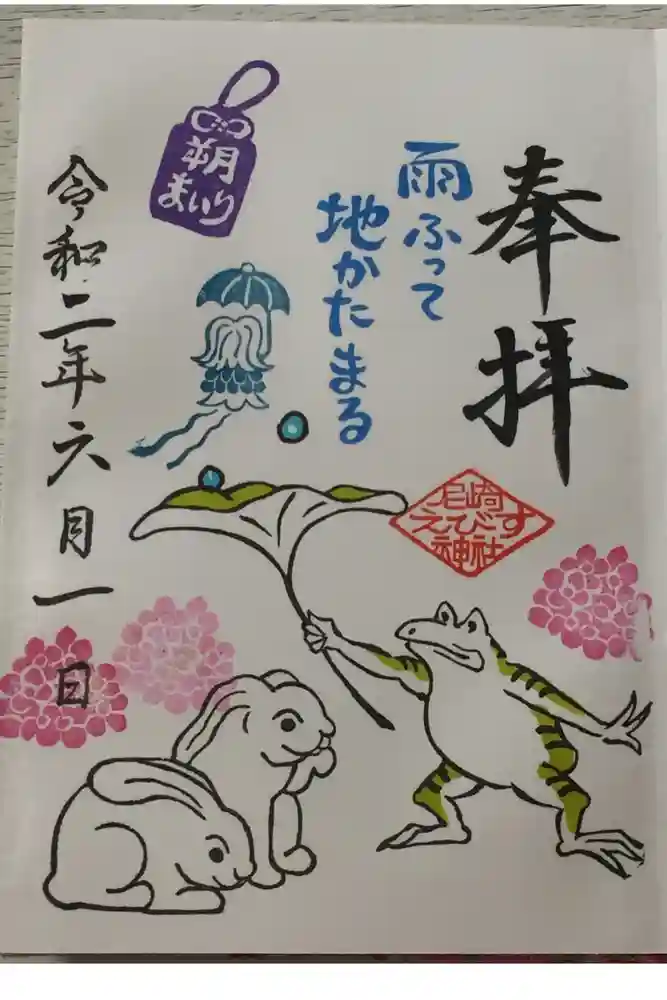 奉拝
雨ふって
地かたまる
尼崎
えびす
神社
朔
まいり
令和二年六月一日